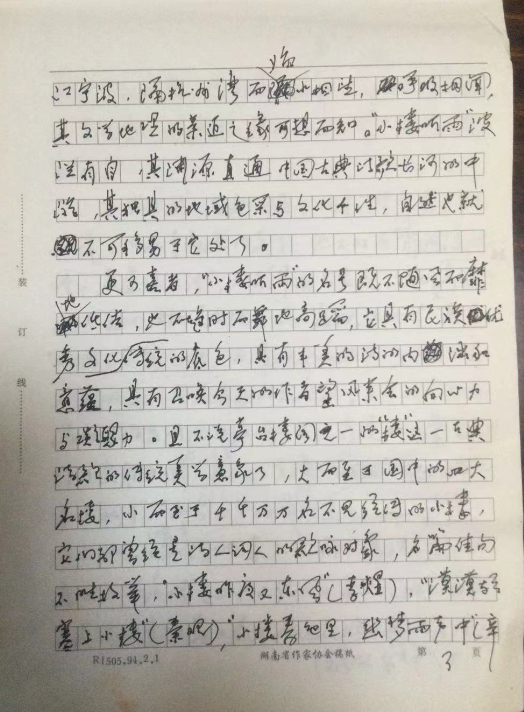 江宁波，隔杭州湾而
其文学地理的亲近之缘可想而知。“小楼听雨”波
注有自，其渊源直通中国古典诗歌长河的中
，其独具的地域色彩与文化个性，自然也就
不可移易于它处了。
更可喜者，“小楼听雨”的名号既不随风而靡
地，也不随时而地，它具有民族优
秀文化传统的底色，具有丰美的诗的内涵和
意蕴，具有召唤今天的作者望风来会的向心力
与凝聚力。且不说亭台楼阁之一的“楼”这一古典
诗歌的传统美学意象了，大而至于国中的四大
名楼，小而至于千千万万名不见经传的小楼，
它们都曾经是诗人词人的歌咏对象，名篇佳句
不胜枚举，“小楼昨夜又东风”（李煜），“漠漠轻
寒上小楼”（秦观），“小楼春色里，幽梦雨声中”（辛
R1505.94.2.1 湖南省作家协会稿纸 第3页
装
订
线